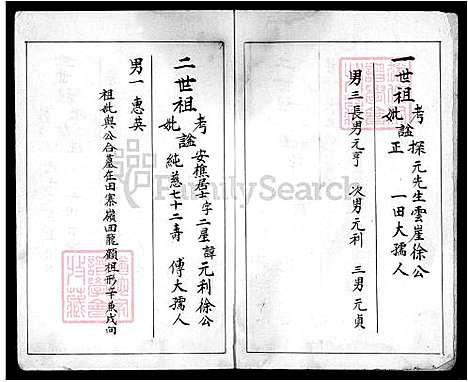 一世祖
考 探元先生雲崖徐公
妣 諡 正 一田大孺人
男三 長男元亨 次男元利 三男元貞
二世祖
考 安樵居士字二星諱元利徐公
妣 諡 純慈七十二壽 傅大孺人
男一 惠英
祖妣與公合墓在田寨嶺回龍顧祖形辛兼戌向
FamilySearch